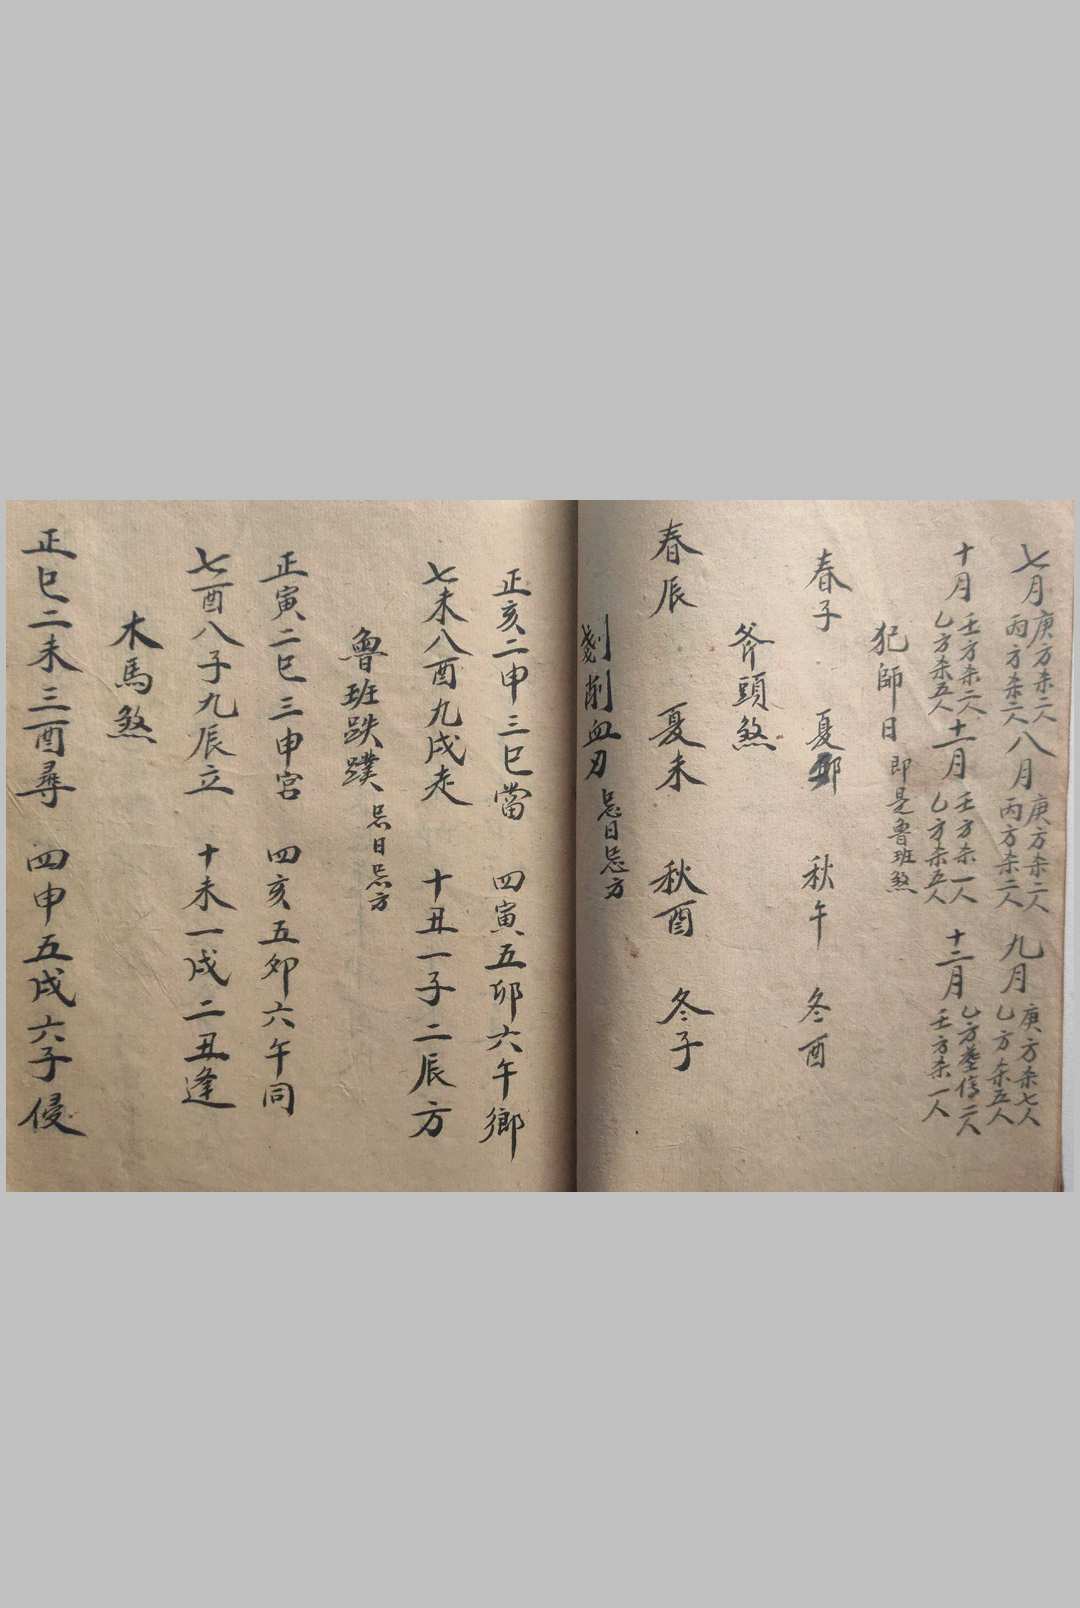 七月 庚方杀二人 丙方杀二人 八月 庚方杀二人 丙方杀二人 九月 庚方杀七人 乙方杀五人
十月 壬方杀二人 乙方杀五人 十一月 壬方杀一人 乙方杀五人 十二月 乙方 二人 壬方杀一人
犯師日 即是魯班煞
春子 夏卯 秋午 冬酉
斧頭煞
春辰 夏未 秋酉 冬子
剗削血刃 忌日忌方
正亥二申三巳當 四寅五卯六午鄉
七未八酉九戌走 十丑一子二辰方
魯班跌蹼 忌日忌方
正寅二巳三申宮 四亥五卯六午同
七酉八子九辰立 十未一戌二丑逢
木馬煞
正巳二未三酉尋 四申五戌六子侵